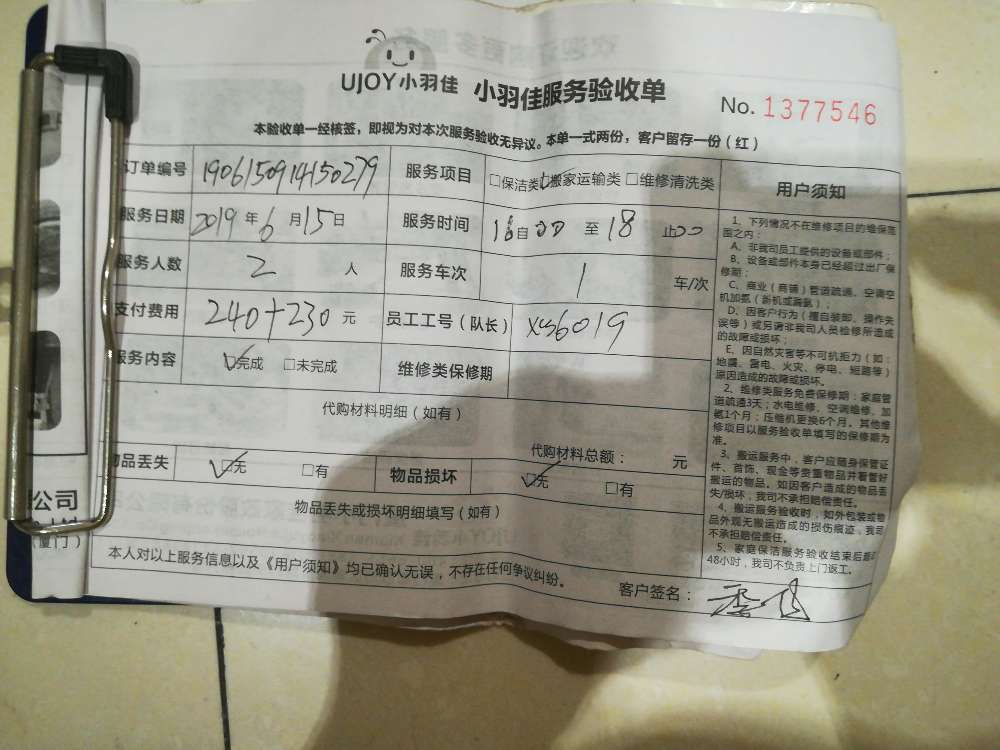 UJOY小羽佳 小羽佳服务验收单 No. 1377546
本验收单一经核签，即视为对本次服务验收无异议。本单一式两份，客户留存一份（红）
订单编号 1906150914150279 服务项目 □保洁类 ☑搬家运输类 □维修清洗类
服务日期 2019年6月15日 服务时间 16自00至18止00
服务人数 2 人 服务车次 1 车/次
支付费用 240+230元 员工工号（队长） xs6019
服务内容 ☑完成 □未完成 维修类保修期
代购材料明细（如有）
代购材料总额： 元
物品丢失 ☑无 □有 物品损坏 ☑无 □有
物品丢失或损坏明细填写（如有）
本人对以上服务信息以及《用户须知》均已确认无误，不存在任何争议纠纷。
客户签名：
用户须知
1、下列情况不在维修项目的维保范
围之内：
A、非我司员工提供的设备或部件；
B、设备或部件本身已经超过出厂保
修期；
C、商业（商铺）管道疏通、空调空
机加氨（新机或漏氨）；
D、因客户行为（擅自装卸、操作失
误等）或另请非我司人员检修所造成
的故障或损坏；
E、因自然灾害等不可抗拒力（如：
地震、雷电、火灾、停电、短路等）
原因造成的故障或损坏。
2、维修类服务免费保修期：家庭管
道疏通3天；水电维修、空调维修、加
氨1个月；压缩机更换6个月。其他维
修项目以服务验收单填写的保修期为
准。
3、搬运服务中，客户应随身保管证
件、首饰、现金等贵重物品并看管好
搬运的物品。如因客户造成的物品丢
失/损坏，我司不承担赔偿责任。
4、搬运服务验收时，如外包装或物
品外观无搬运造成的损伤痕迹，我司
不承担赔偿责任。
5、家庭保洁服务验收结束后超过
48小时，我司不负责上门返工。
公司
（厦门）